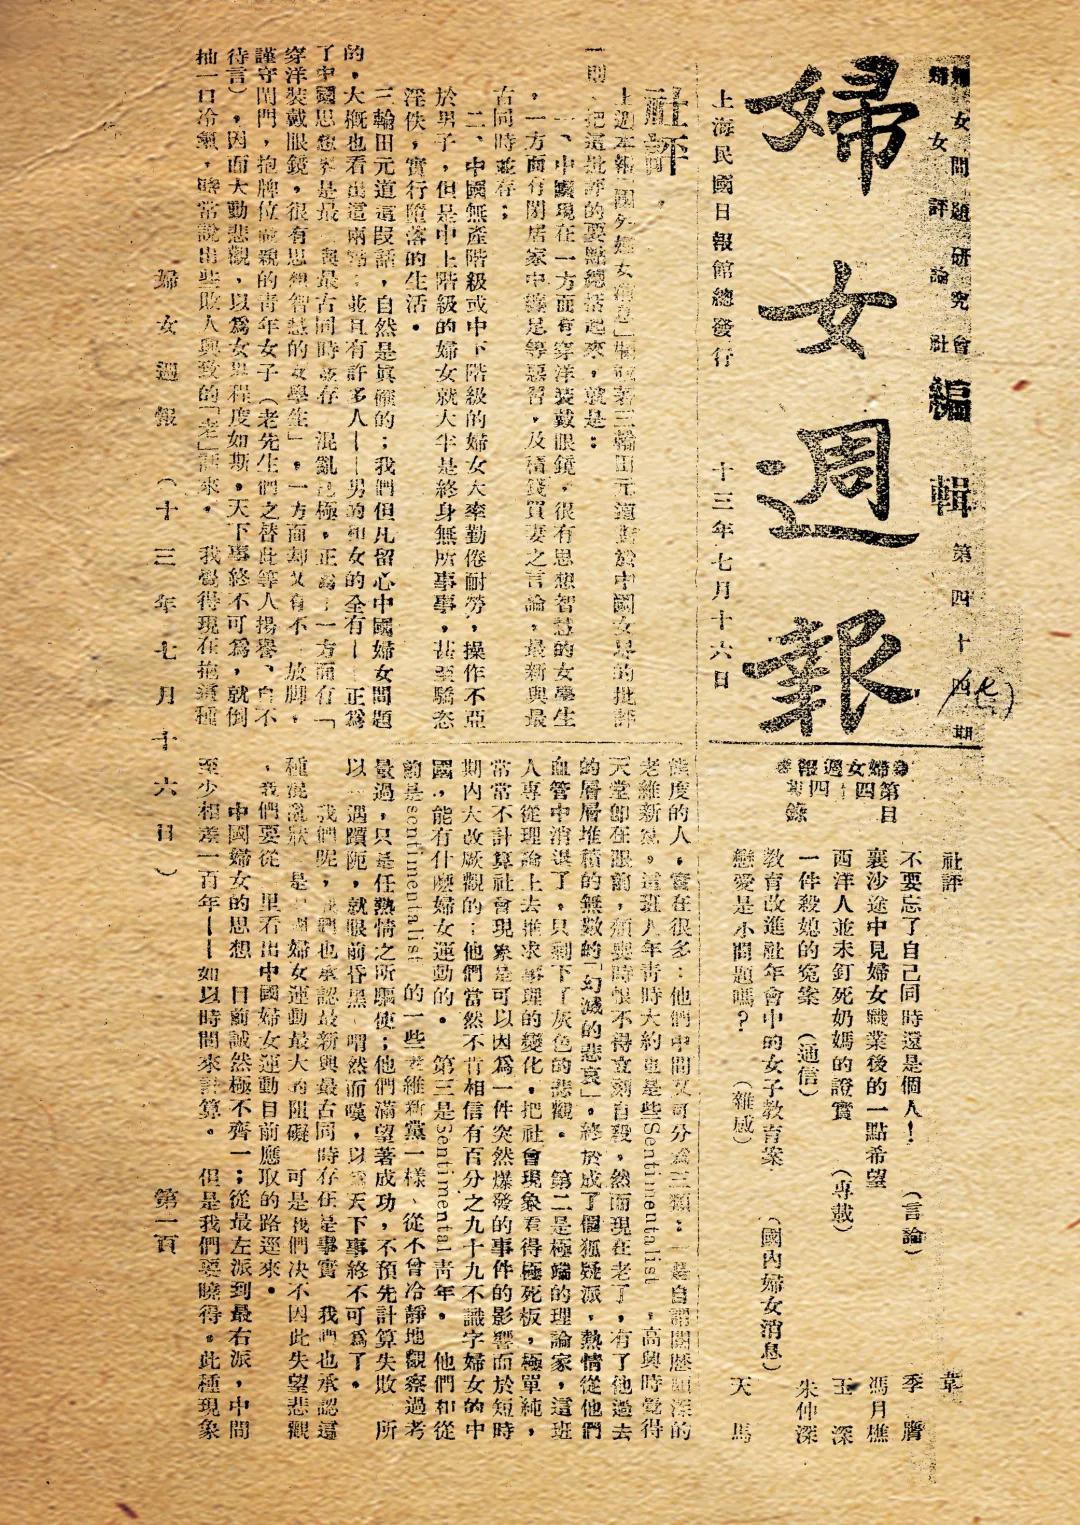 婦女問題研究會
婦女評論社
編輯
第四十四期
(七)
婦女週報
上海民國日報館總發行
十三年七月十六日
婦女週報
第四十四
目錄
社評
不要忘了自己同時還是個人! (言論) 季
襄沙途中見婦女職業後的一點希望 馮月樵
西洋人並未釘死奶媽的證實 (專載) 王 深
一件殺媳的寃案 (通信) 朱仲深
教育改進社年會中的女子教育案 (國內婦女消息)
戀愛是小問題嗎? (雜感) 天 馬
社評
上週本報「國外婦女消息」欄載著三輪田元道對於中國女界的批評
一則、把這批評的要點總括起來,就是:
一、中國現在一方面有穿洋裝戴眼鏡,很有思想智慧的女學生
,一方面有閑居家中纏足等惡習,及積錢買妻之言論,最新與最
古同時並存;
二、中國無產階級或中下階級的婦女大率勤倦耐勞,操作不亞
於男子,但是中上階級的婦女就大半是終身無所事事,甚至驕恣
淫佚,實行墮落的生活。
三輪田元道這段話,自然是眞確的;我們但凡留心中國婦女問題
的,大概也看出這兩 並且有許多人——男的和女的全有——正爲
了中國思想界是最 與最古同時並存 混亂 極,正爲 一方面有「
穿洋裝戴眼鏡,很有思想智慧的女學生」,一方面却又有不 放脚,
謹守閨門,抱牌位 親的青年女子(老先生們之替此等人揚譽、自不
待言),因而大動悲觀,以爲女界程度如斯,天下事終不可爲,就倒
抽一口冷氣,時常說出些敗人興致的「老」話來。 我覺得現在抱這種
態度的人,實在很多:他們中間又可分爲三類:一是自謂閱歷頗深的
老維新黨,這班人年青時大約也是些Sentimentalist,高興時覺得
天堂卽在眼前,頹喪時恨不得立刻自殺,然而現在老了,有了他過去
的層層堆積的無數的「幻滅的悲哀」,終於成了個狐疑派,熱情從他們
血管中消退了,只剩下了灰色的悲觀。 第二是極端的理論家,這班
人專從理論上去推求事理的變化,把社會現象看得極死板,極單純,
常常不計算社會現象是可以因爲一件突然爆發的事件的影響而於短時
期內大改厥觀的:他們當然不肯相信有百分之九十九不識字婦女的中
國,能有什麽婦女運動的。 第三是Sentimental靑年。 他們和從
前是sentimentalist 的一些老維新黨一樣、從不曾冷靜地觀察過考
量過,只是任熱情之所驅使;他們滿望著成功,不預先計算失敗 所
以一遇躓阨,就眼前昏黑 喟然而嘆,以爲天下事終不可爲了。
我們呢,我們也承認最新與最古同時存在是事實 我們也承認這
種混亂狀 是 婦女運動最大的阻礙 可是我們決不因此失望悲觀
,我們要從 里看出中國婦女運動目前應取的路逕來。
中國婦女的思想 目前誠然極不齊一;從最左派到最右派,中間
至少相差一百年——如以時間來計算。 但是我們要曉得,此種現象
婦女週報 (十三年七月十六日) 第一頁